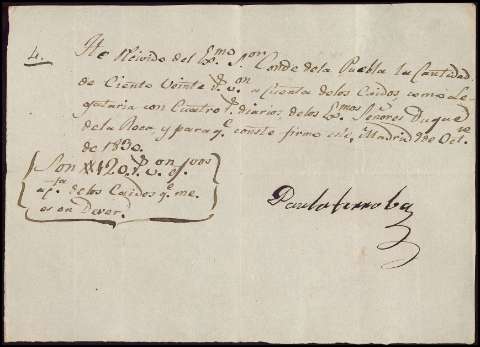 4. He Reivido del Exmo Sor Conde dela Puebla la Cantidad
de Ciento Veinte rs. von a Cuenta delos Caidos, como Le-
gataria con Cuatro rs. diarios, delos Exmos Señores Duques
dela Roca, y para qe conste firmo en Madrid de Octre
de 1830.
Son 120. rs. von
delos Caidos qe me
es on Dever.
Paula